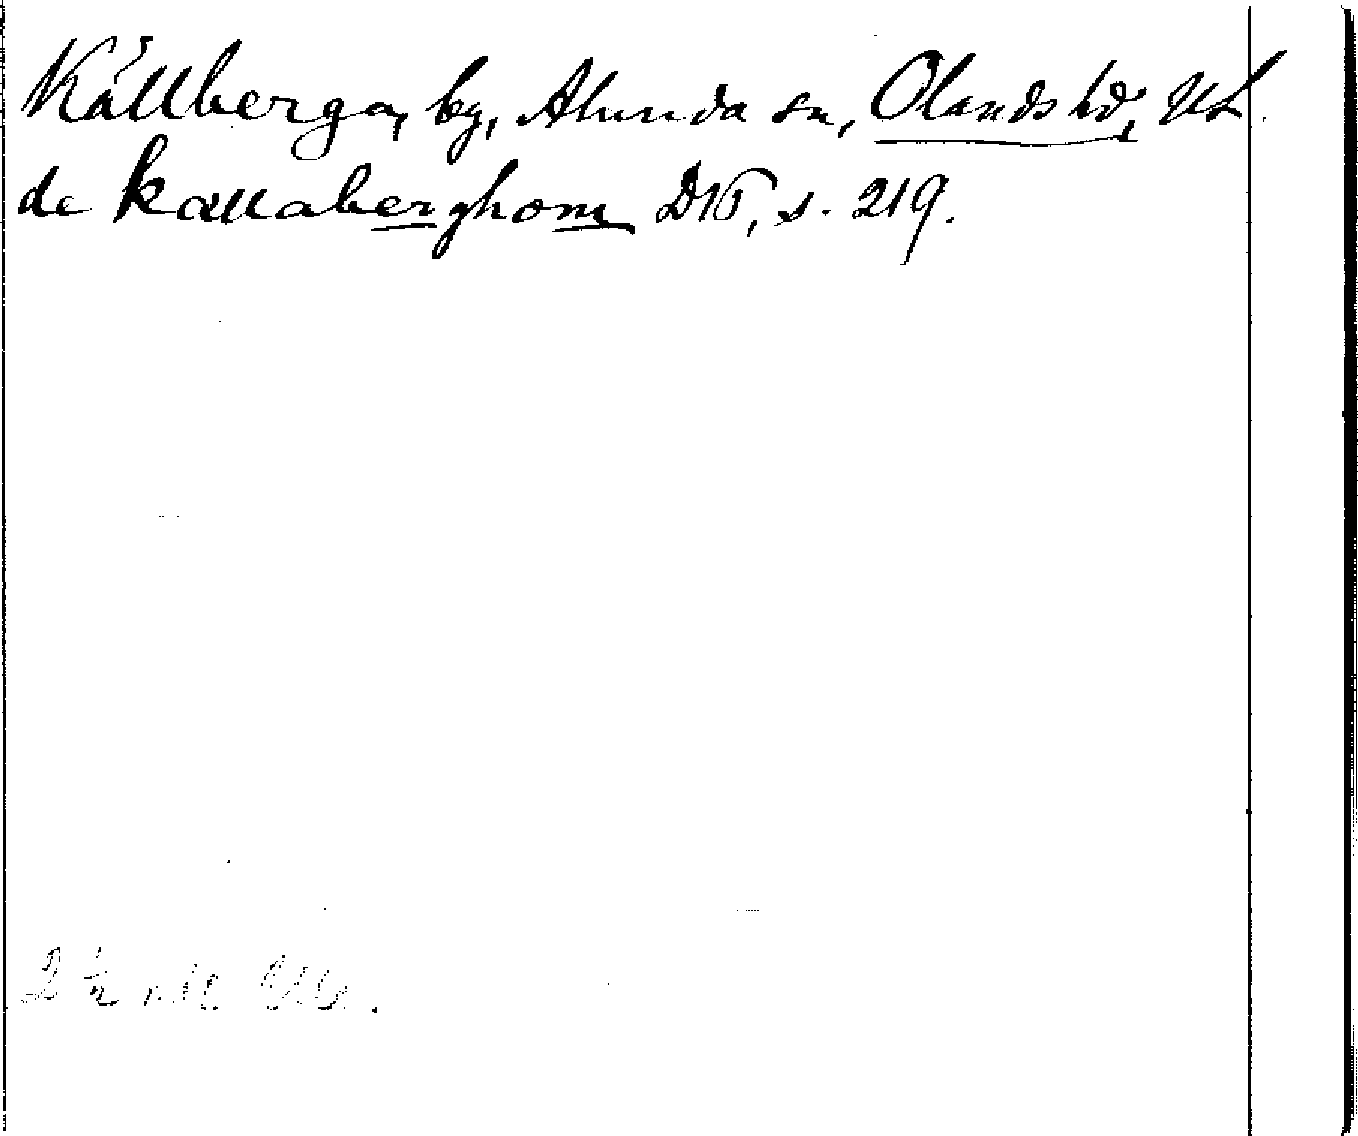 Källberga, by, Alunda sn, Olands hd, Upl.
de kællaberghom D10, s. 219.
2 ½